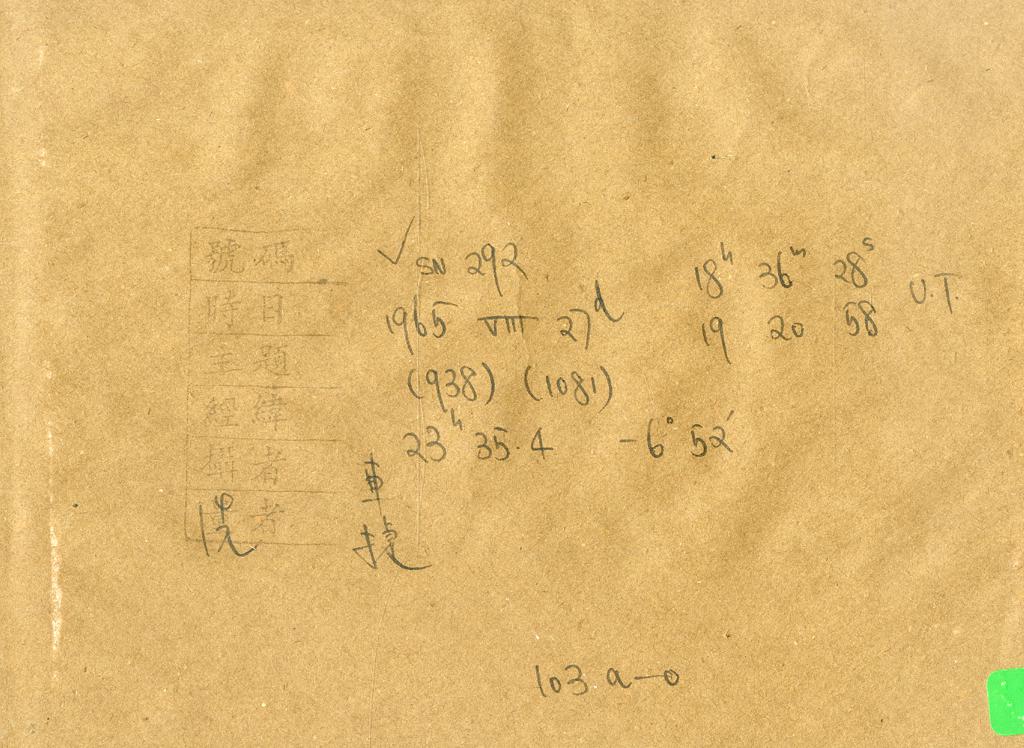 號碼 ✓ SN 292 18h 36m 28s
時日 1965 VIII 27d 19 20 58 U.T.
主題 (938) (1081)
經緯 23h 35.4 -6° 52'
攝者 車
洗者
103 a-o